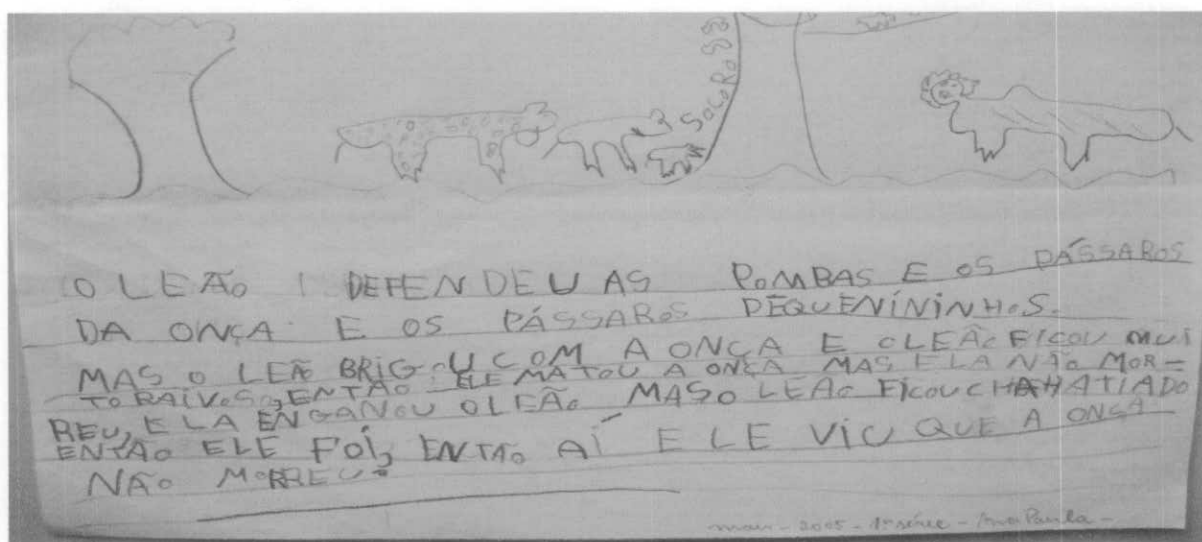 SOCORO
O LEÃO DEFENDEU AS POMBAS E OS PÁSSAROS
DA ONÇA E OS PÁSSAROS PEQUENININHOS.
MAS O LEÃO BRIGOU COM A ONÇA E O LEÃO FICOU MUI
TO RAIVOSO, ENTÃO ELE MATOU A ONÇA MAS ELA NÃO MOR-
REU, ELA ENGANOU O LEÃO MAS O LEÃO FICOU CHAHATIADO
ENTÃO ELE FOI, ENTÃO AÍ ELE VIU QUE A ONÇA
NÃO MORREU.
2005 - 1ª série - Ana Paula -